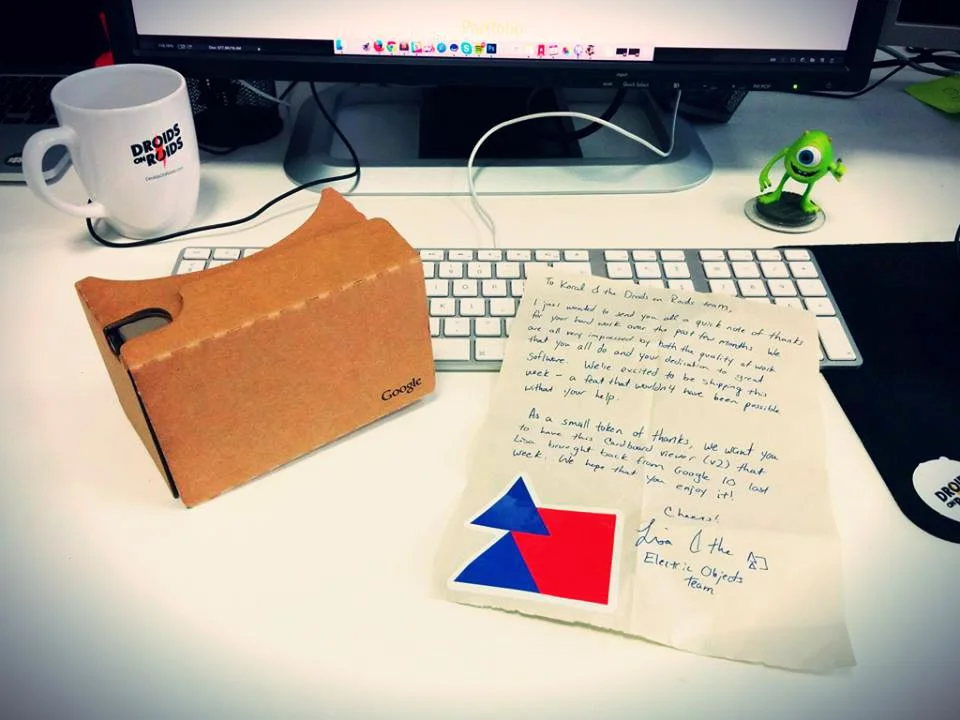 DROIDS
ON ROIDS
Google
To Koral & the Droids on Roids teams,
I just wanted to send you all a quick note of thanks
for your hard work over the past few months. We
are all very impressed by both the quality of work
that you all do and your dedication to great
software. We're excited to be shipping this
week - a feat that wouldn't have been possible
without your help.
As a small token of thanks, we want you
to have this Cardboard viewer (v2) that
Lisa brought back from Google IO last
week. We hope that you enjoy it!
Cheers!
Lisa & the
Electric Objects
team
DROID
ON